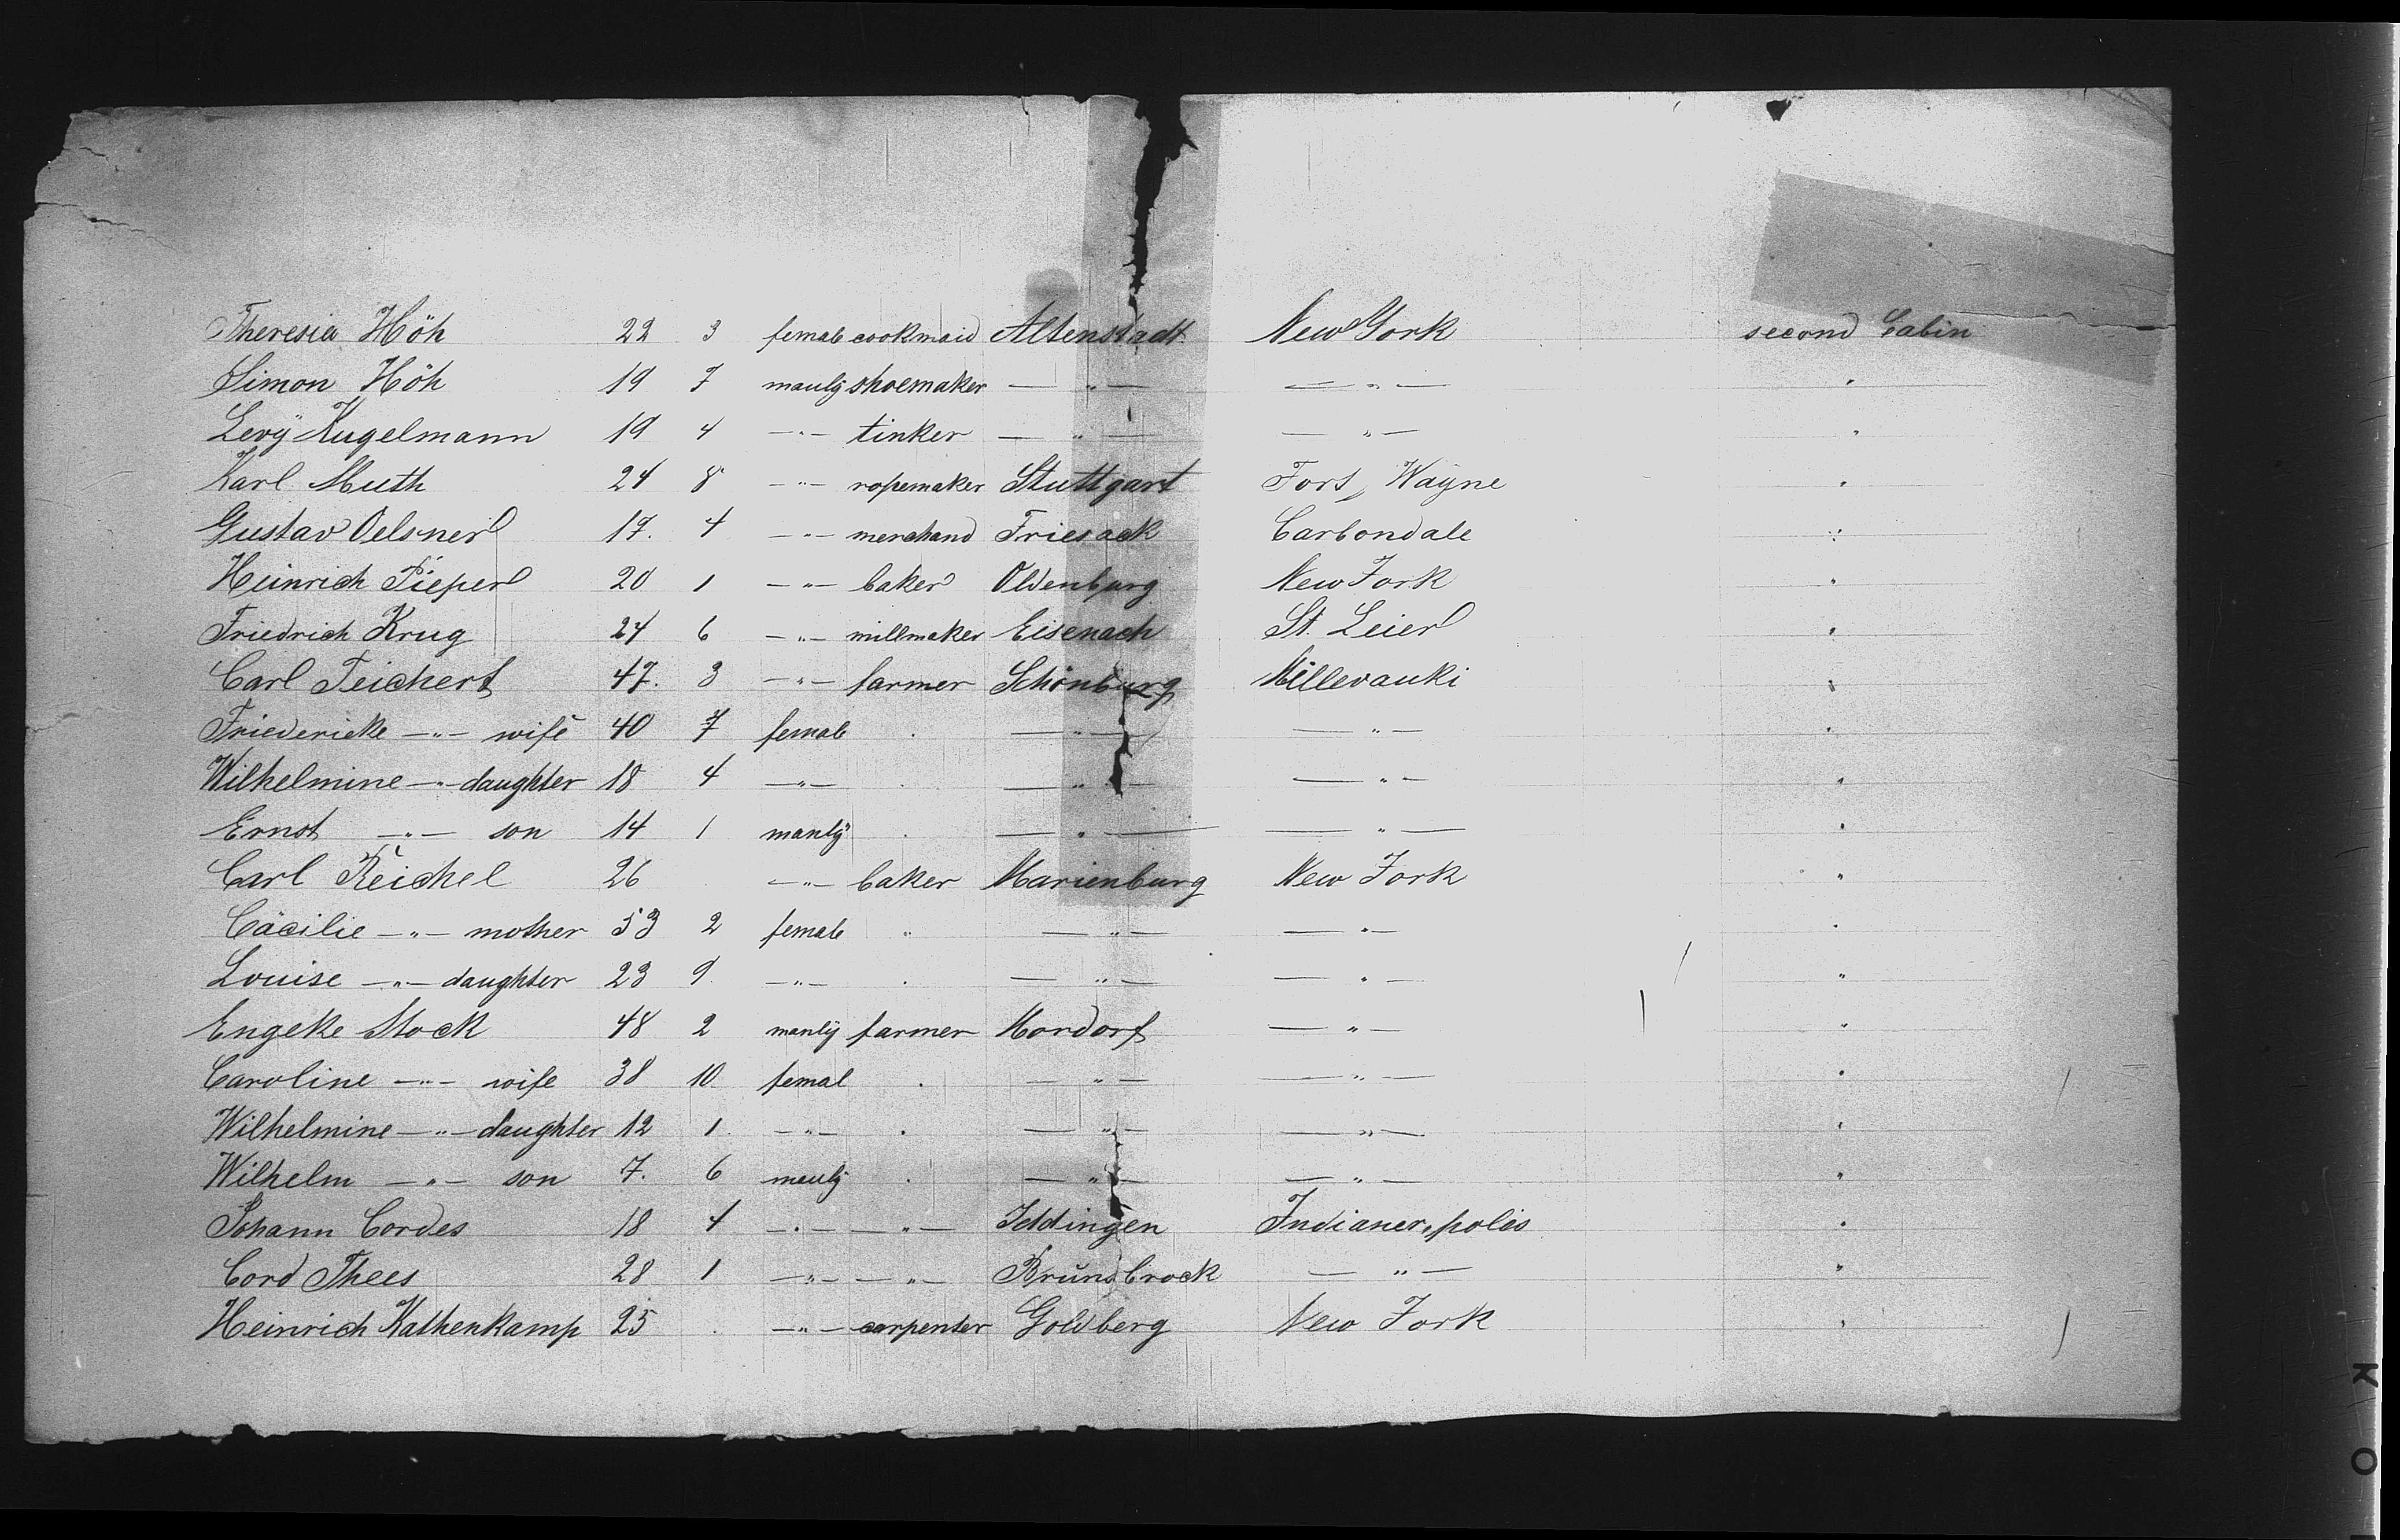 Theresia Höh 22 3 female cookmaid Altenstadt New York second Cabin
Simon Höh 19 7 manly shoemaker — " — — " — "
Levy Kugelmann 19 4 — " — tinker — " — — " — "
Karl Muth 24 8 — " — ropemaker Stuttgart Fort, Wayne "
Gustav Oelsner 17. 4 — " — merchand Friesack Carbondale "
Heinrich Pieper 20 1 — " — baker Oldenburg New York "
Friedrich Krug 24 6 — " — millmaker Eisenach St. Leier "
Carl Teichert 47. 3 — " — farmer Schönburg Millevauki "
Friedericke — " — wife 40 7 female . — " — — " — "
Wilhelmine — " — daughter 18 4 — " — . — " — — " — "
Ernst — " — son 14 1 manly . — " — — " — "
Carl Reichel 26 — " — baker Marienburg New York "
Cäcilie — " — mother 53 2 female " — " — — " — "
Louise — " — daughter 23 9. — " — . — " — — " — "
Engeke Stock 48 2 manly farmer Hordorf — " — "
Caroline — " — wife 38 10. femal . — " — — " — "
Wilhelmine — " — daughter 12 1. — " — . — " — — " — "
Wilhelm — " — son 7. 6 manly . — " — — " — "
Johann Cordes 18 4 — " — — " — Jeddingen Indianer,polis "
Cord Thees 28 1 — " — — " — Brünsbrock — " — "
Heinrich Kathenkamp 25 . — " — carpenter Goldberg New York "
K O